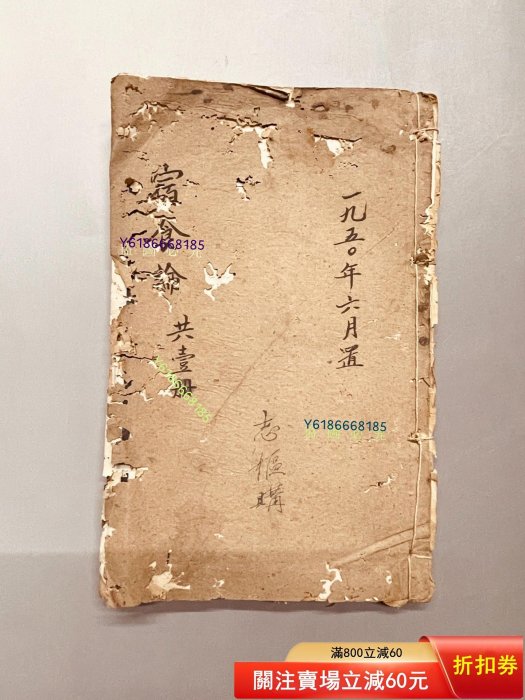 一九五〇年六月置
志樞購
論
共壹冊
Y6186668185
Y6186668185
Y6186668185
滿800立減60
關注賣場立減60元
折扣券